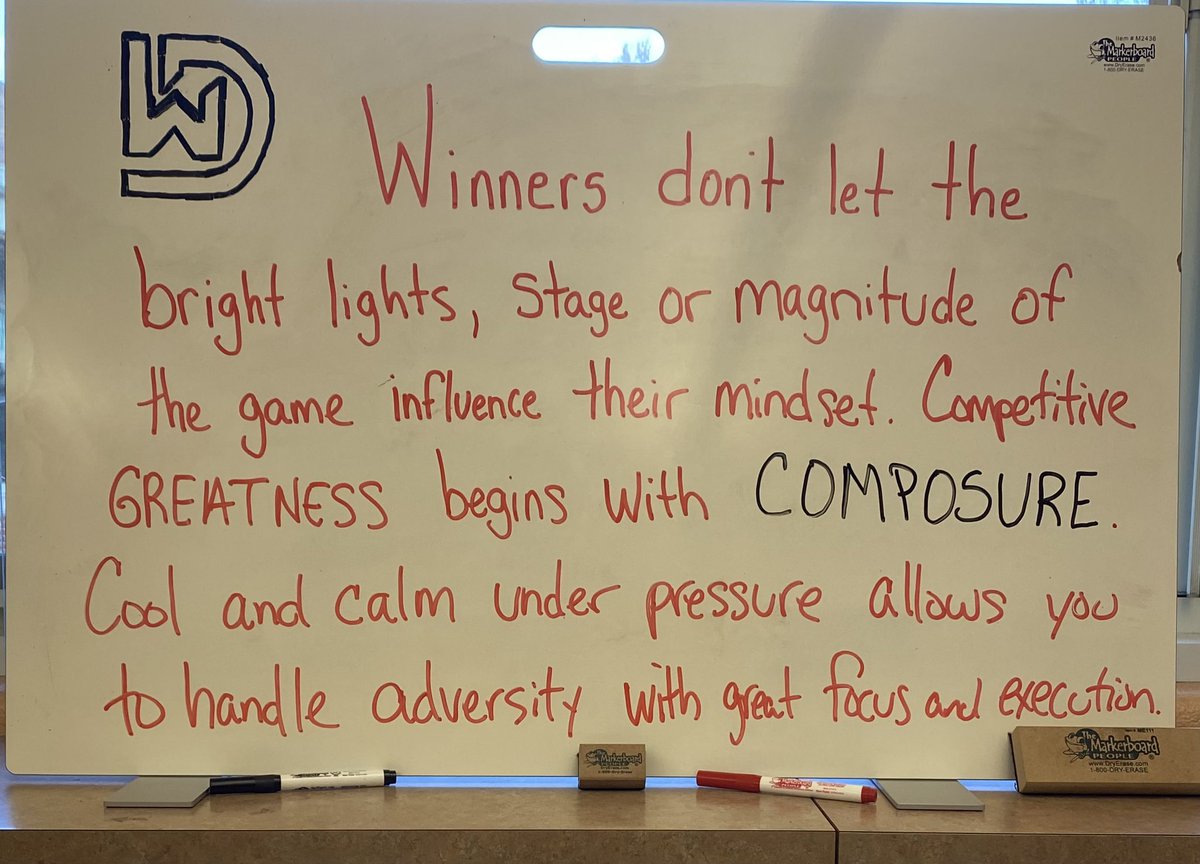 WD
Item # M2436
The Markerboard
PEOPLE
www.DryErase.com
1-800-DRY-ERASE
Winners don't let the
bright lights, stage or magnitude of
the game influence their mindset. Competitive
GREATNESS begins with COMPOSURE.
Cool and calm under pressure allows you
to handle adversity with great focus and execution.
The Markerboard
PEOPLE
DryErase.com
1-800-Dry-Erase
Item# ME111
The Markerboard
PEOPLE
www.DryErase.com
1-800-DRY-ERASE